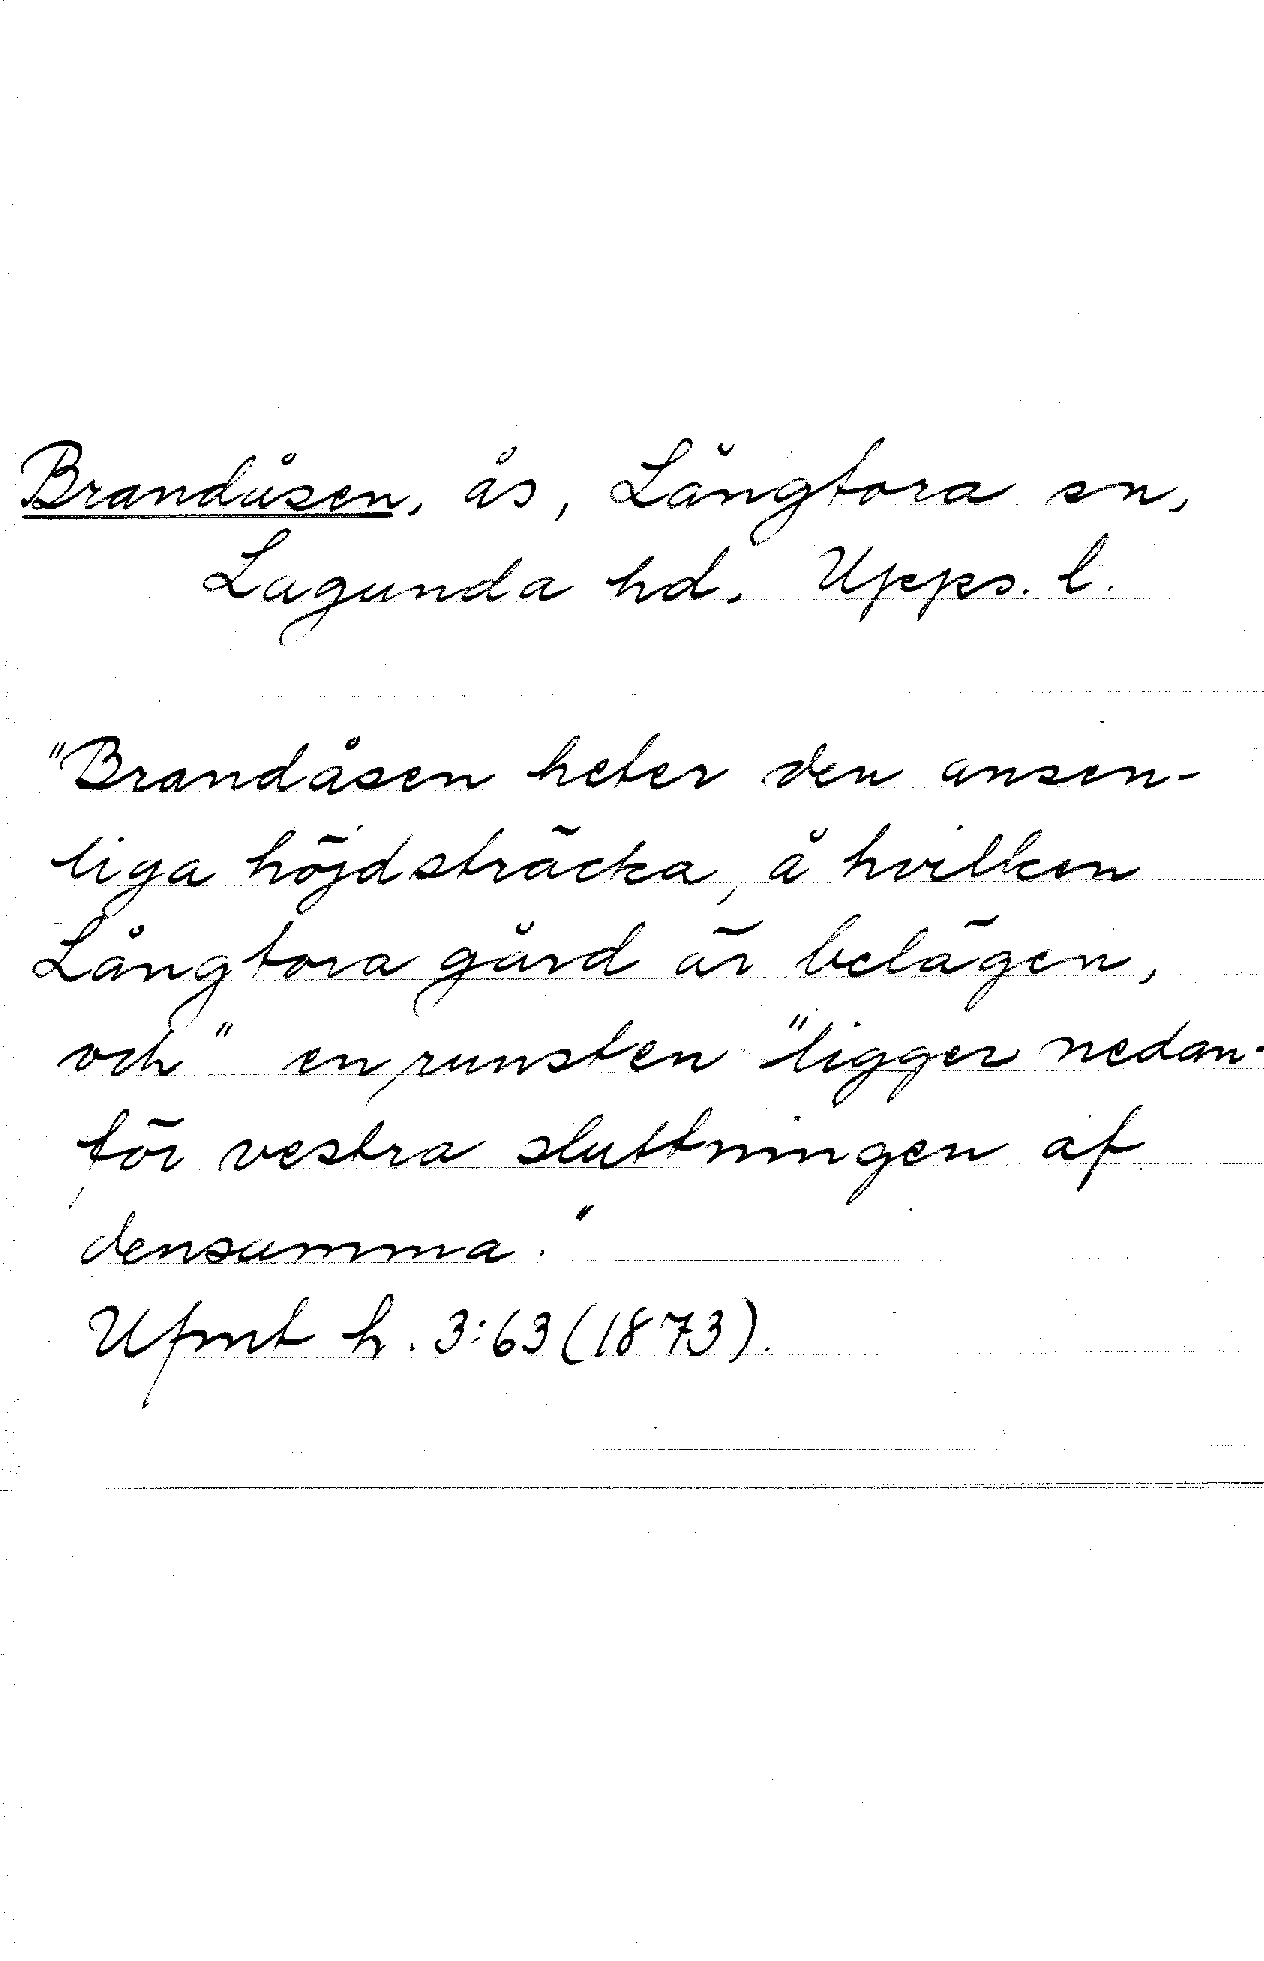 Brandåsen, ås, Långtora sn,
Lagunda hd. Upps. l.
"Brandåsen heter den ansen-
liga höjdsträcka, å hvilken
Långtora gård är belägen,
och" en runsten "ligger nedan-
för vestra sluttningen af
densamma."
Ufmt h. 3:63 (1873).